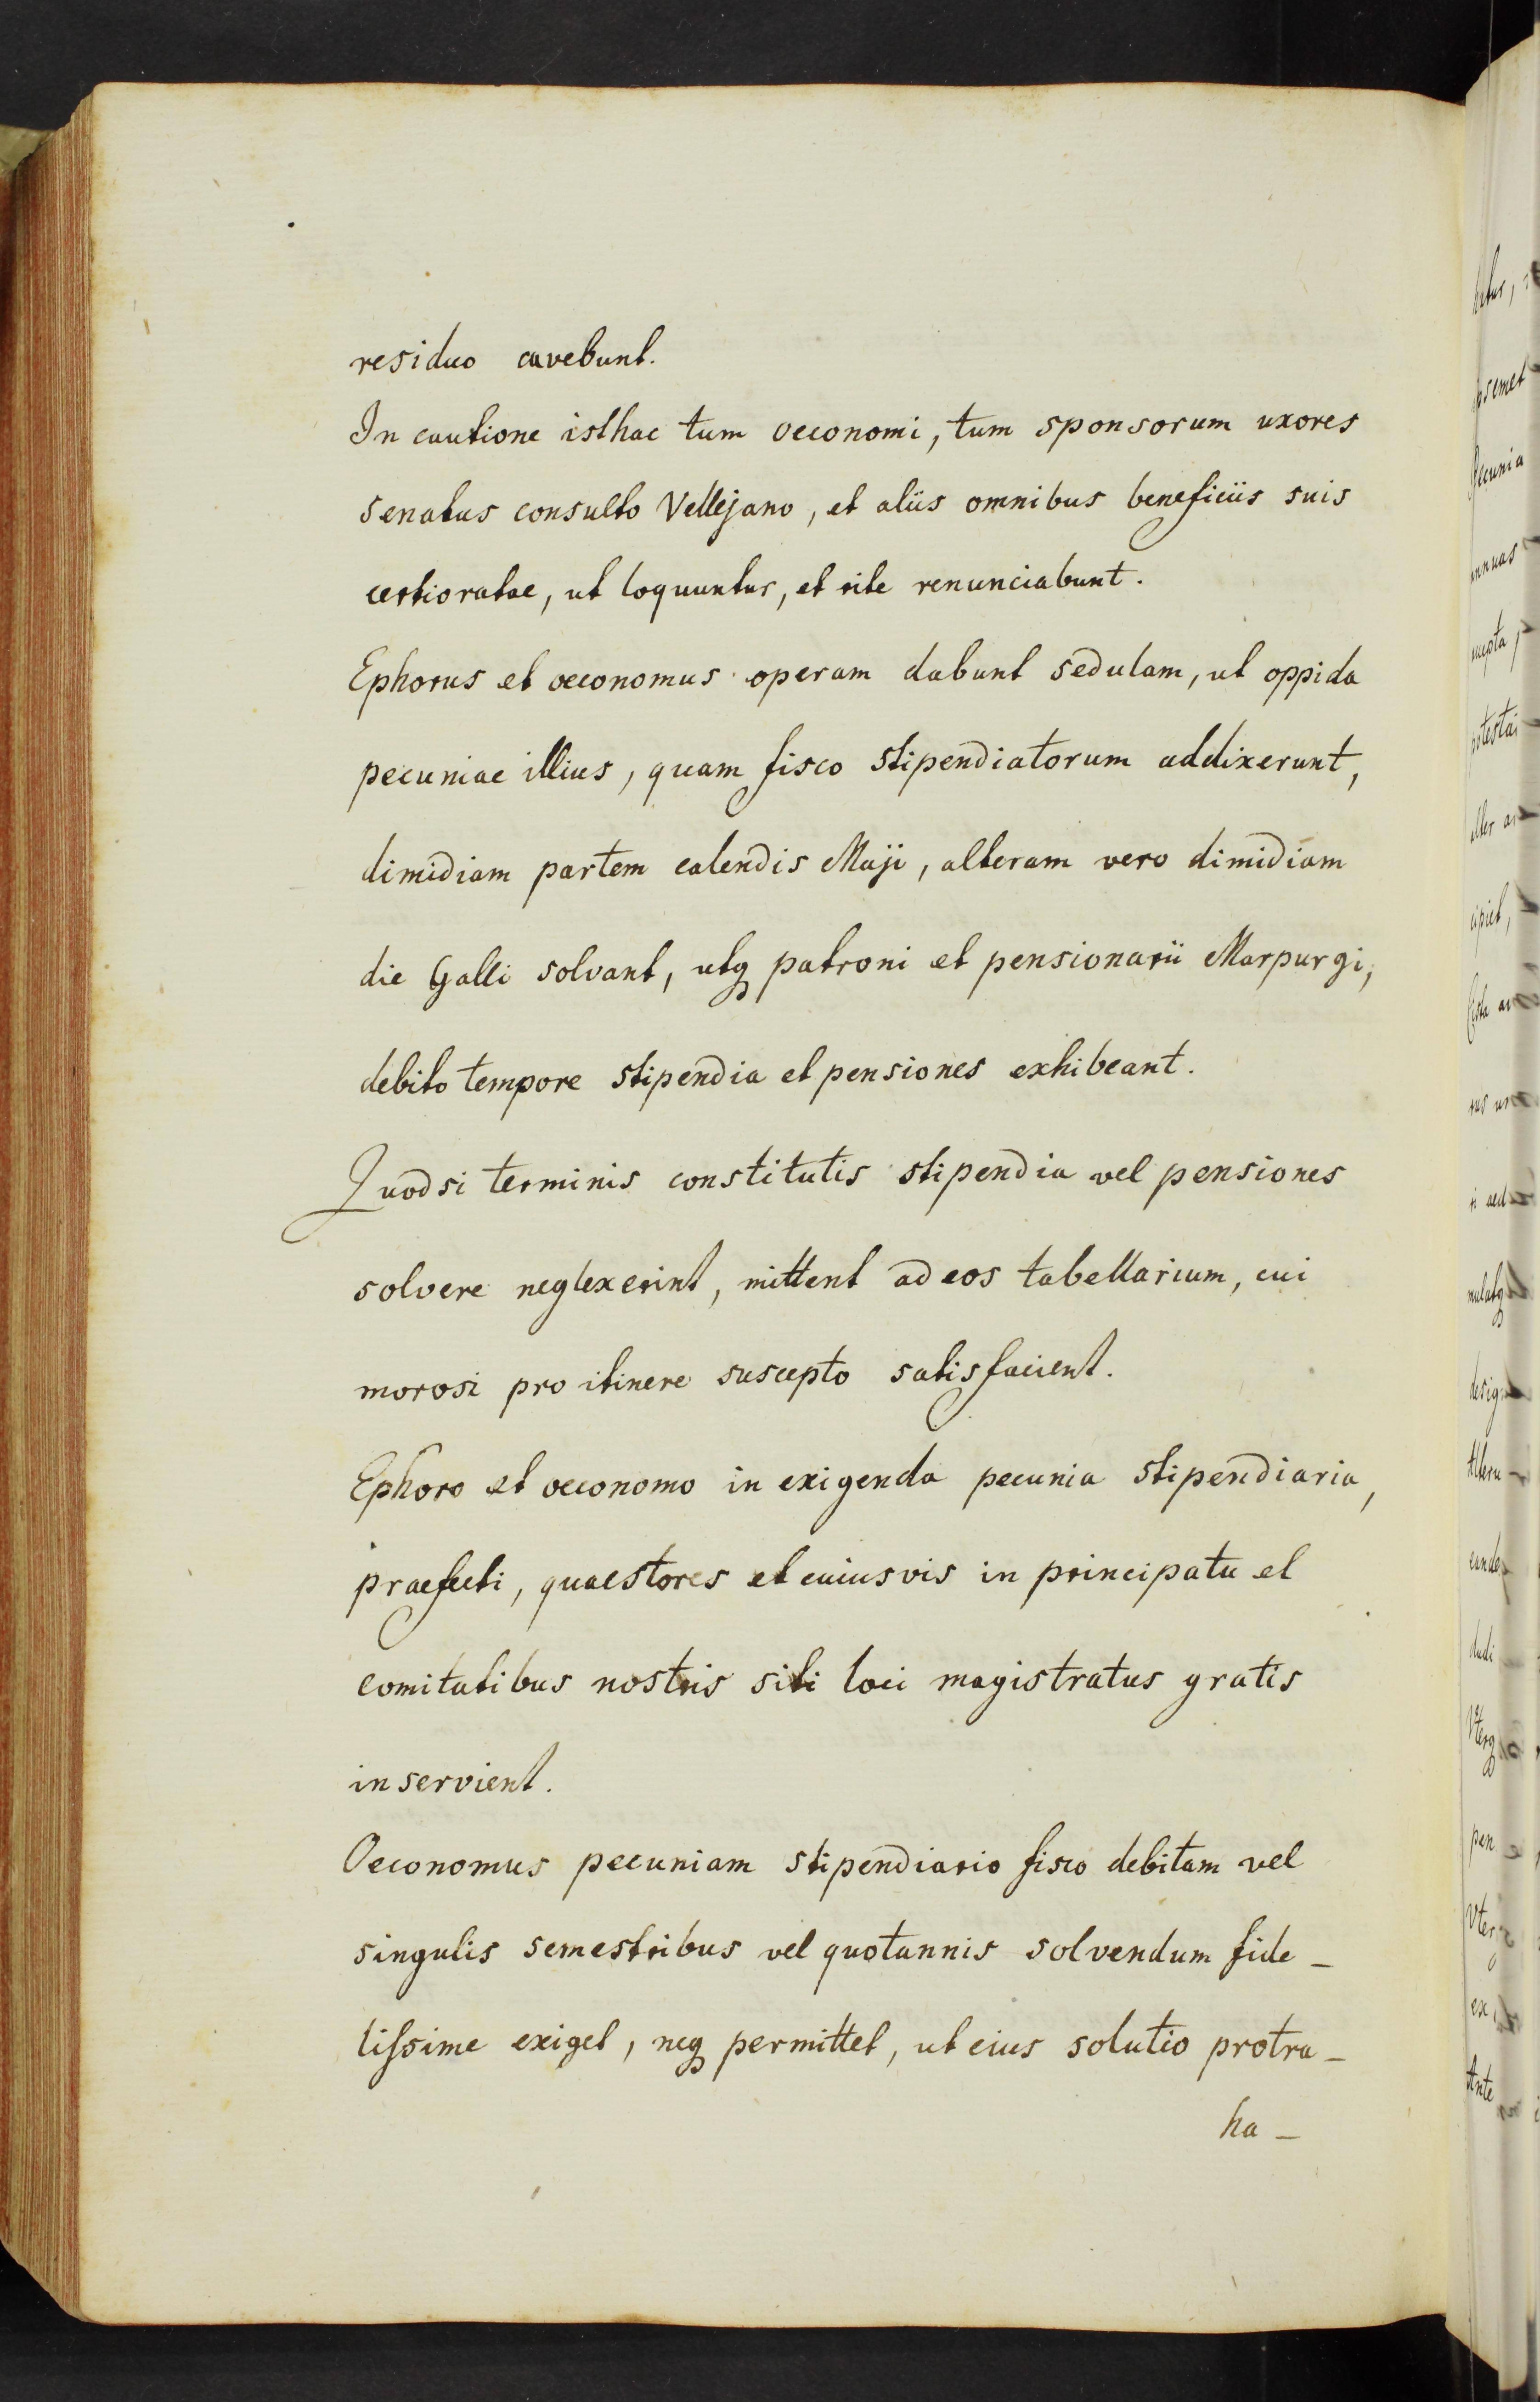 residuo cavebunt.
In cautione isthac tum oeconomi, tum sponsorum uxores
senatus consulto Vellejano, et aliis omnibus beneficiis suis
certioratae, ut loquuntur, et rite renunciabunt.
Ephorus et oeconomus operam dabunt sedulam, ut oppida
pecuniae illius, quam fisco stipendiatorum addixerunt,
dimidiam partem calendis Maji, alteram vero dimidiam
die Galli solvant, utq patroni et pensionarii Marpurgi,
debito tempore stipendia et pensiones exhibeant.
Quodsi terminis constitutis stipendia vel pensiones
solvere neglexerint, mittent ad eos tabellarium, cui
morosi pro itinere suscepto satisfacient.
Ephoro et oeconomo in exigenda pecunia stipendiaria,
praefecti, quaestores et cuiusvis in principatu et
comitatibus nostris siti loci magistratus gratis
inservient.
Oeconomus pecuniam stipendiario fisco debitam vel
singulis semestribus vel quotannis solvendum fide_
lissime exiget, neq permittet, ut eius solutio protra_
ha_